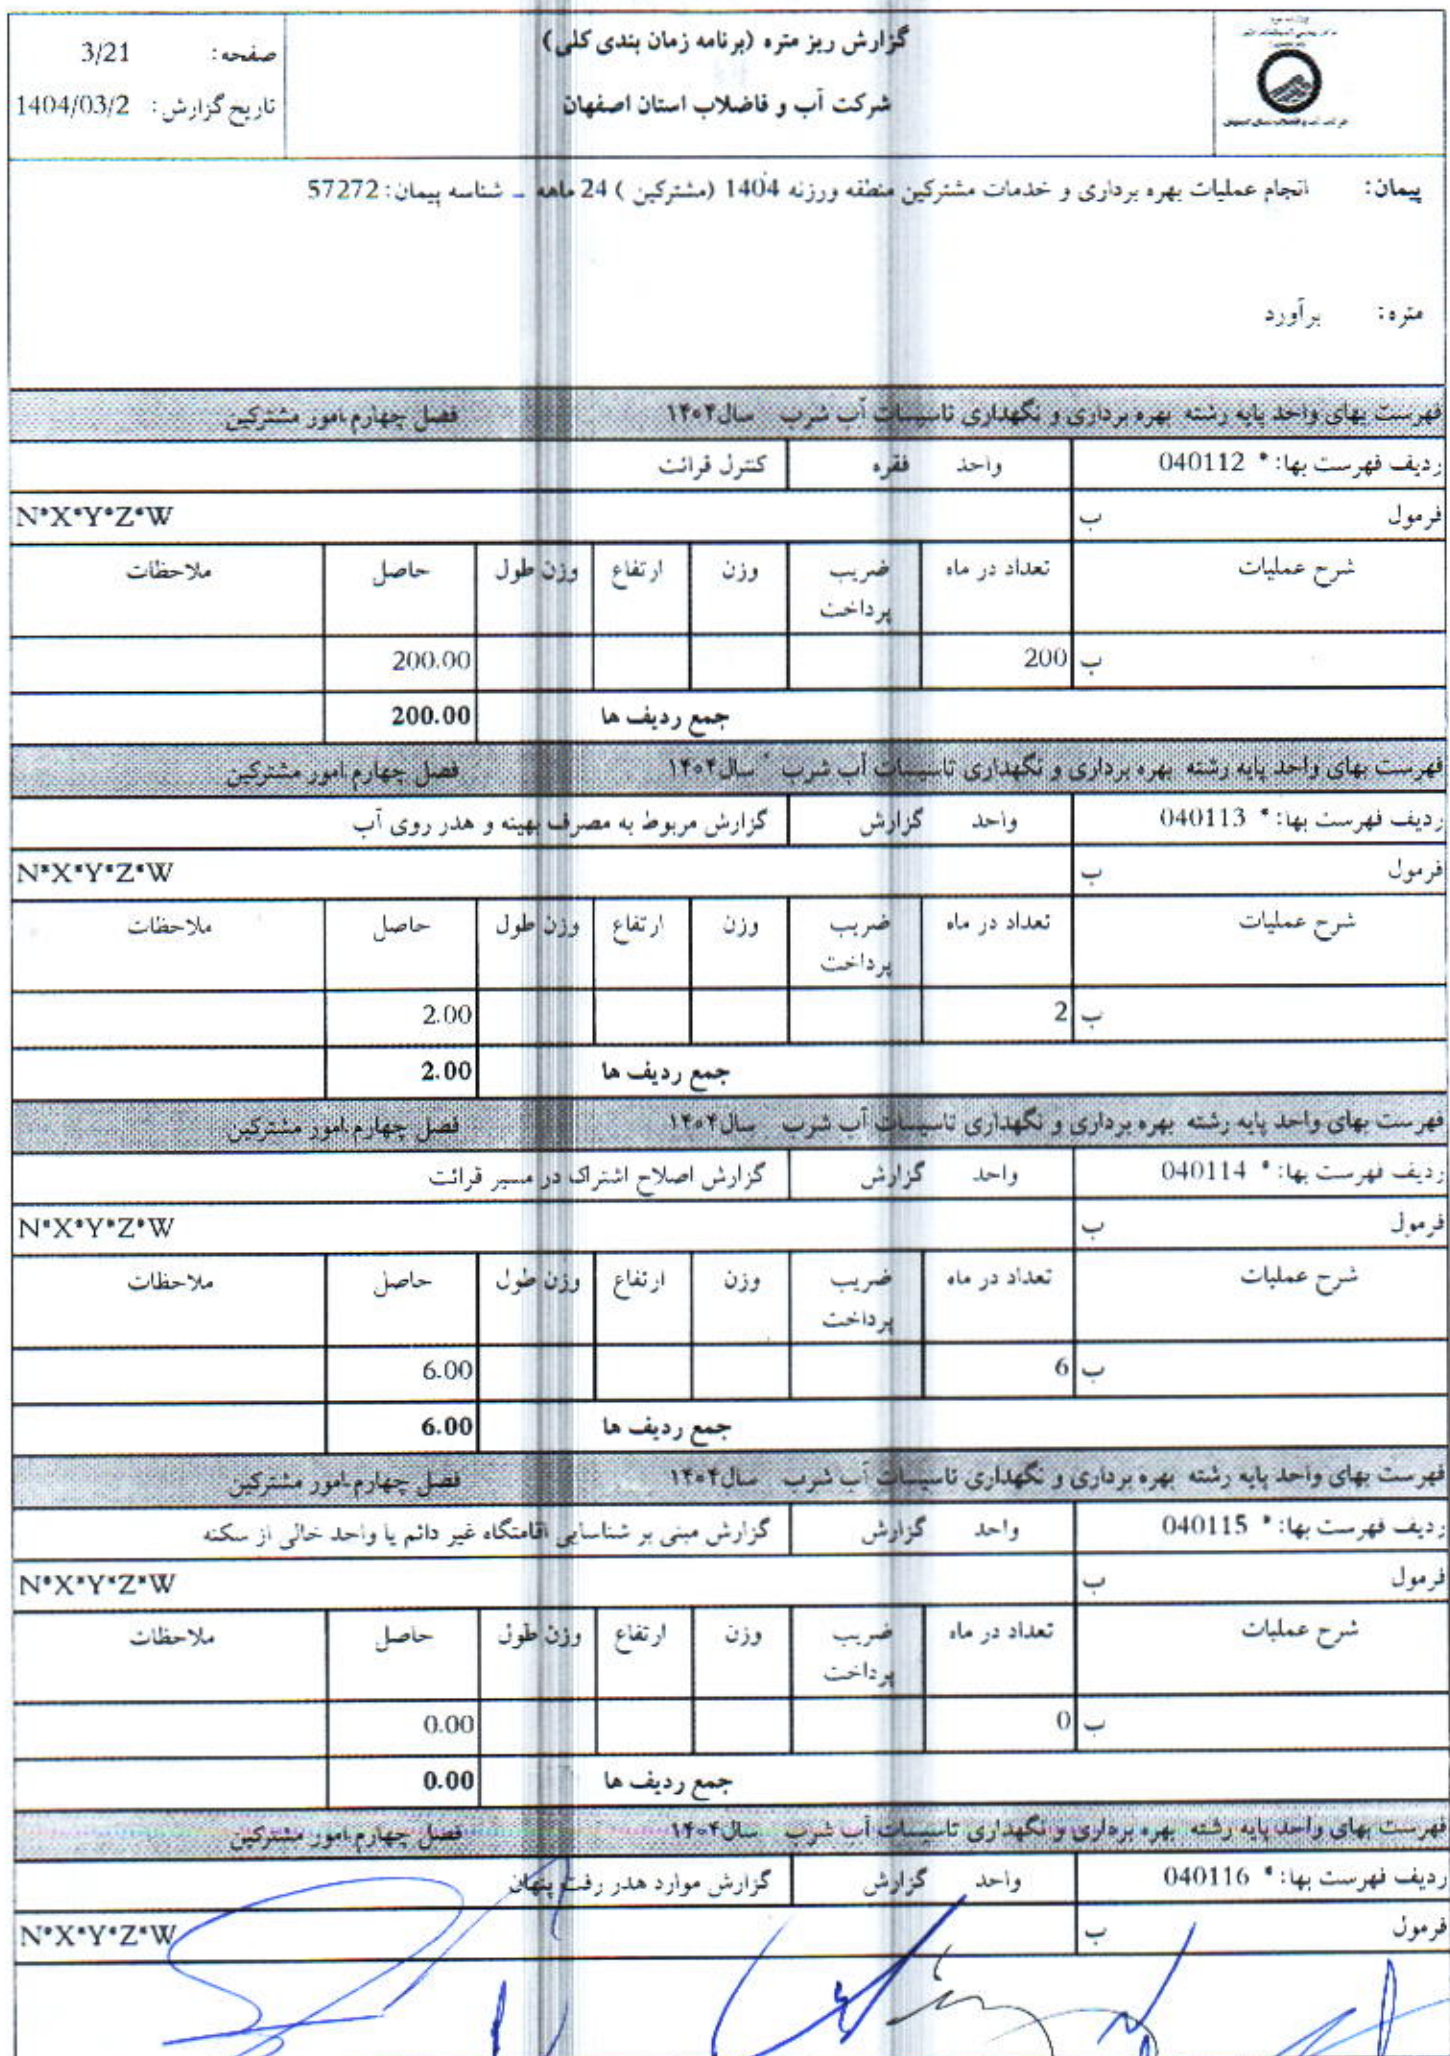 گزارش ریز متره (برنامه زمان بندی کلی)
شرکت آب و فاضلاب استان اصفهان
صفحه: 3/21
تاریخ گزارش: 1404/03/2
پیمان: انجام عملیات بهره برداری و خدمات مشترکین منطقه ورزنه 1404 (مشترکین ) 24 ماهه _ شناسه پیمان: 57272
متره: برآورد
فهرست بهای واحد پایه رشته بهره برداری و نگهداری تاسیسات آب شرب سال۱۴۰۴ فصل چهارم.امور مشترکین
ردیف فهرست بها: * 040112 واحد فقره کنترل قرائت
فرمول ب N*X*Y*Z*W
شرح عملیات تعداد در ماه ضریب پرداخت وزن ارتفاع وزن طول حاصل ملاحظات
ب 200 200.00
جمع ردیف ها 200.00
فهرست بهای واحد پایه رشته بهره برداری و نگهداری تاسیسات آب شرب سال۱۴۰۴ فصل چهارم.امور مشترکین
ردیف فهرست بها: * 040113 واحد گزارش گزارش مربوط به مصرف بهینه و هدر روی آب
فرمول ب N*X*Y*Z*W
شرح عملیات تعداد در ماه ضریب پرداخت وزن ارتفاع وزن طول حاصل ملاحظات
ب 2 2.00
جمع ردیف ها 2.00
فهرست بهای واحد پایه رشته بهره برداری و نگهداری تاسیسات آب شرب سال۱۴۰۴ فصل چهارم.امور مشترکین
ردیف فهرست بها: * 040114 واحد گزارش گزارش اصلاح اشتراک در مسیر قرائت
فرمول ب N*X*Y*Z*W
شرح عملیات تعداد در ماه ضریب پرداخت وزن ارتفاع وزن طول حاصل ملاحظات
ب 6 6.00
جمع ردیف ها 6.00
فهرست بهای واحد پایه رشته بهره برداری و نگهداری تاسیسات آب شرب سال۱۴۰۴ فصل چهارم.امور مشترکین
ردیف فهرست بها: * 040115 واحد گزارش گزارش مبنی بر شناسایی اقامتگاه غیر دائم یا واحد خالی از سکنه
فرمول ب N*X*Y*Z*W
شرح عملیات تعداد در ماه ضریب پرداخت وزن ارتفاع وزن طول حاصل ملاحظات
ب 0 0.00
جمع ردیف ها 0.00
فهرست بهای واحد پایه رشته بهره برداری و نگهداری تاسیسات آب شرب سال۱۴۰۴ فصل چهارم.امور مشترکین
ردیف فهرست بها: * 040116 واحد گزارش گزارش موارد هدر رفت پنهان
فرمول ب N*X*Y*Z*W